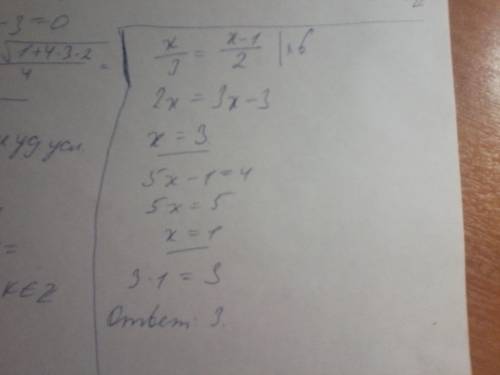 -3=0
√1+4·3·2
4
=
уд усл.
=
k∈Z
x/3 = x-1/2 | x6
2x = 3x-3
x = 3
5x-1=4
5x=5
x=1
3·1=3
Ответ: 3.